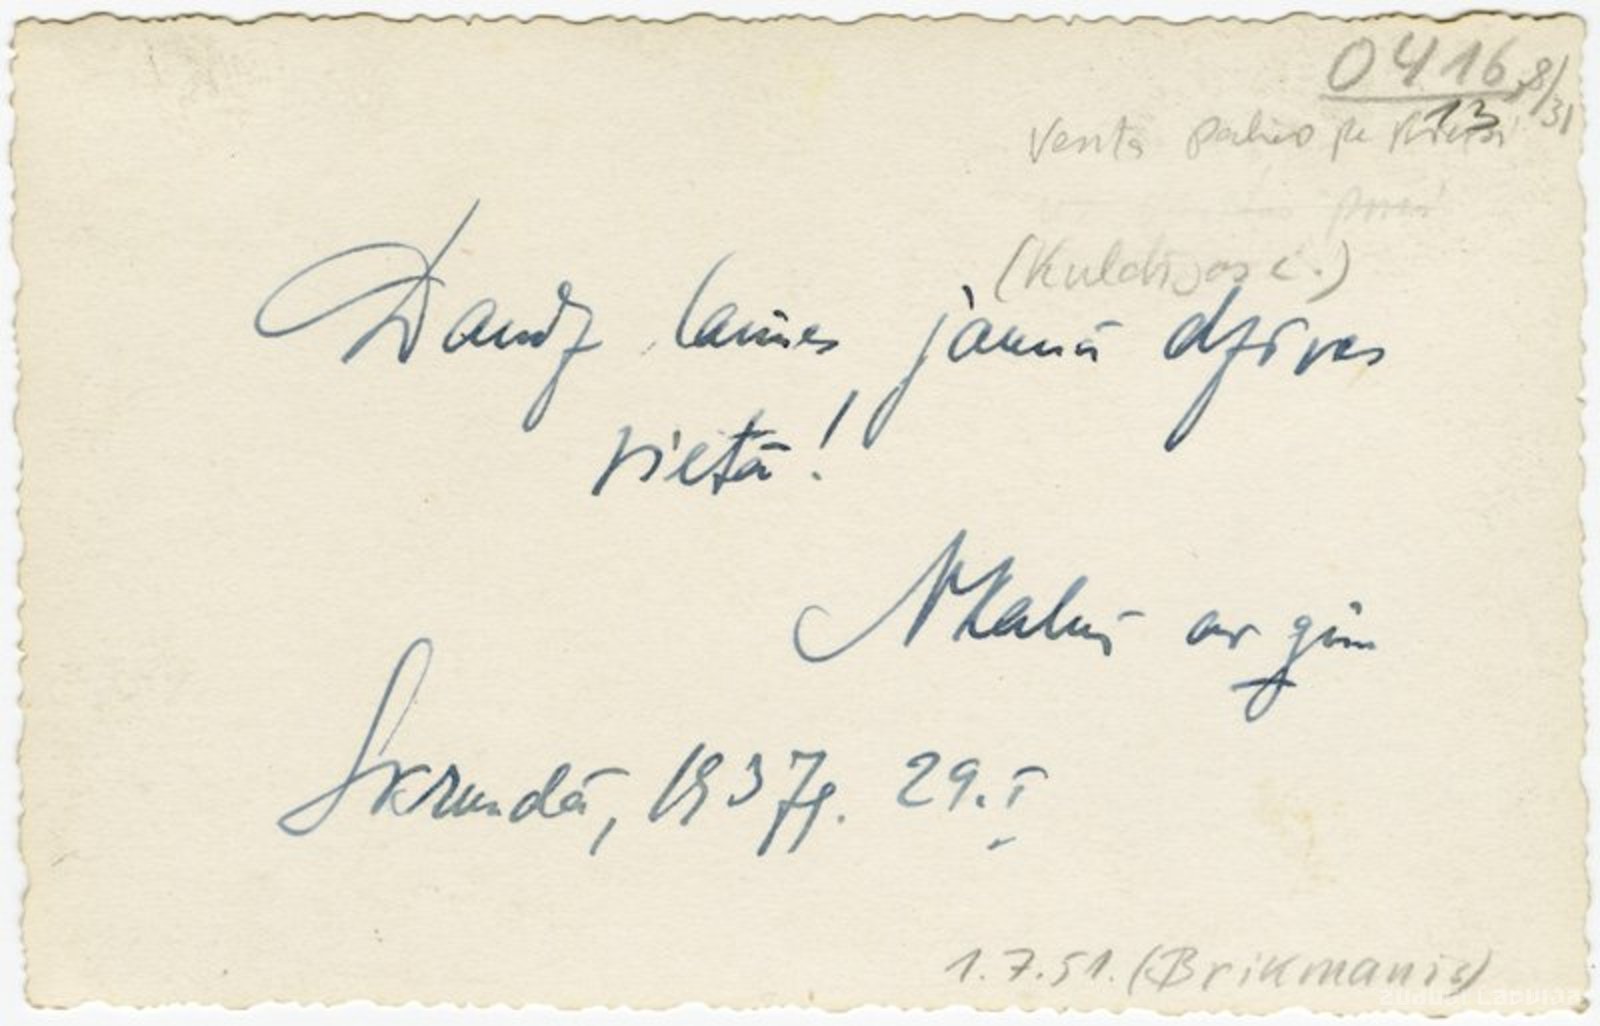 0416,8/31
13
Venta
(Kuldīgas
Daudz laimes jaunā dzīves
vietā!
ar ģim
Skrundā, 1937g. 29.I
1.7.51. (Brikmanis)
zudusi Latvija